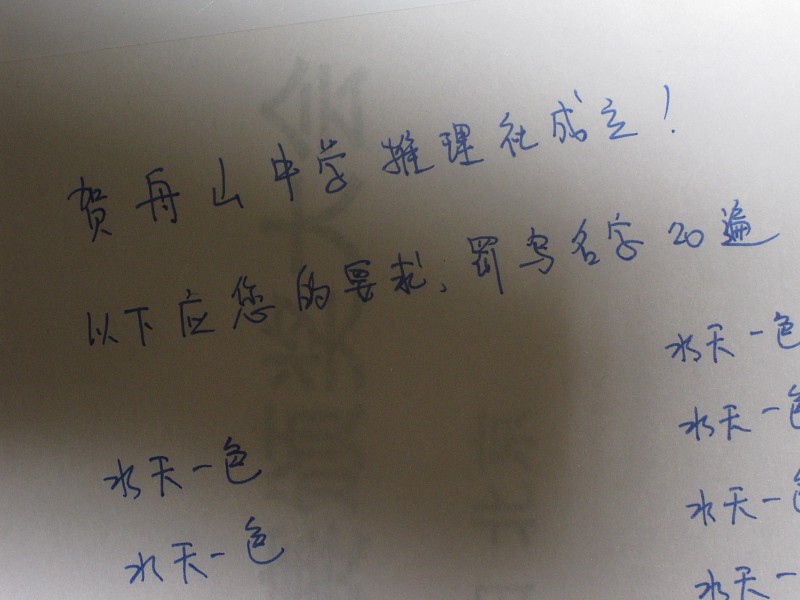 贺舟山中学推理社成立！
以下应您的要求，罚写名字20遍
水天一色
水天一色
水天一色
水天一色
水天一色
水天一